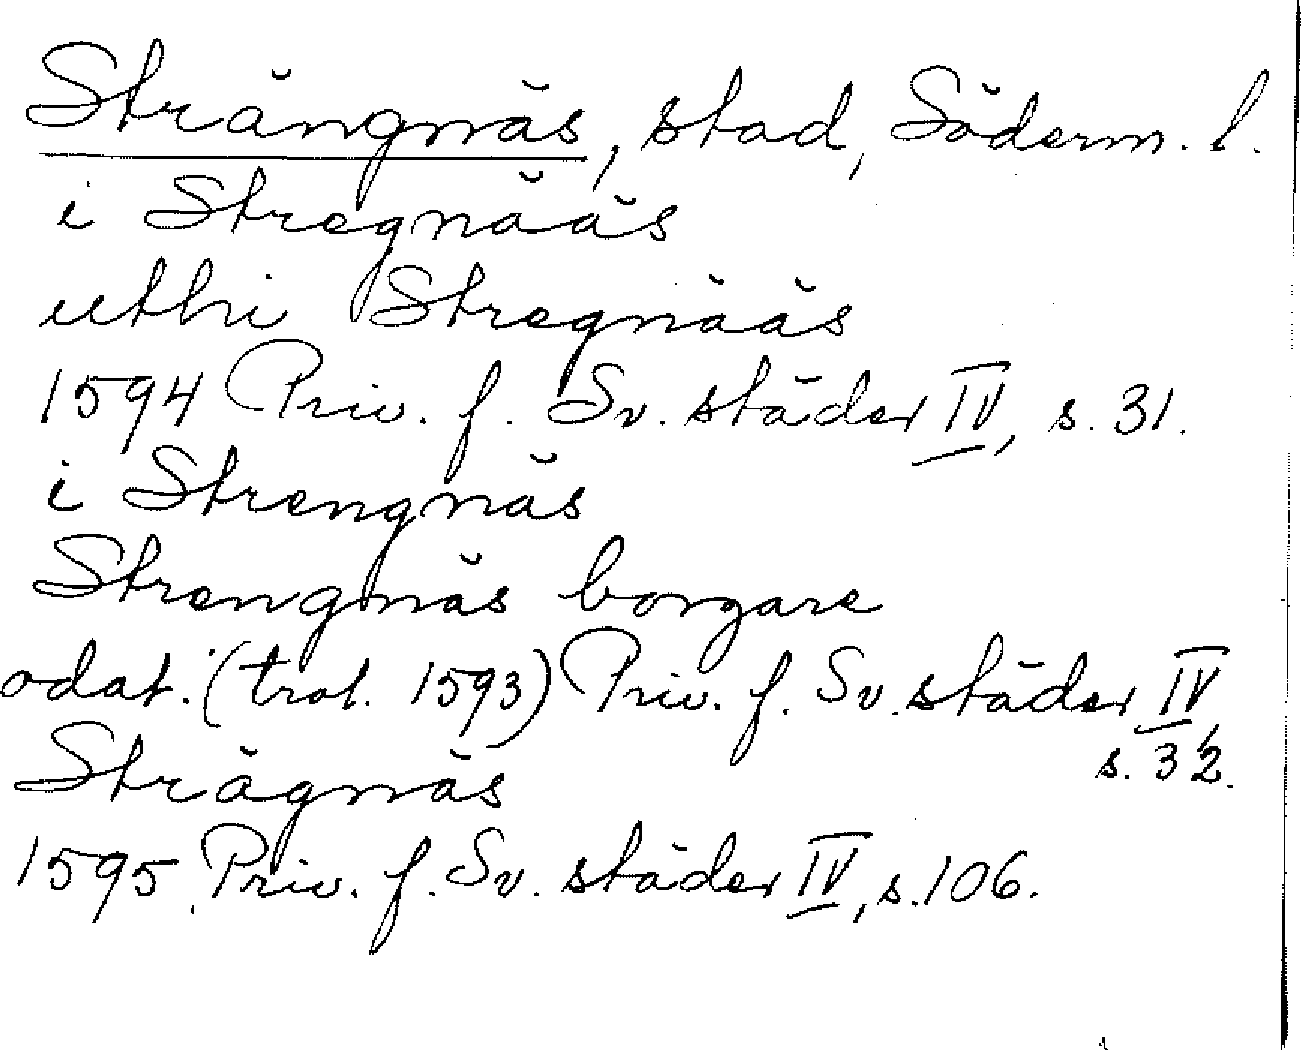 Strängnäs, stad, Söderm. l.
i Stregnääs
uthi Stregnääs
1594 Priv. f. Sv. städer IV, s. 31.
i Strengnäs
Strengnäs borgare
odat. (trol. 1593) Priv. f. Sv. städer IV,
s. 32.
Strägnäs
1595 Priv. f. Sv. städer IV, s. 106.